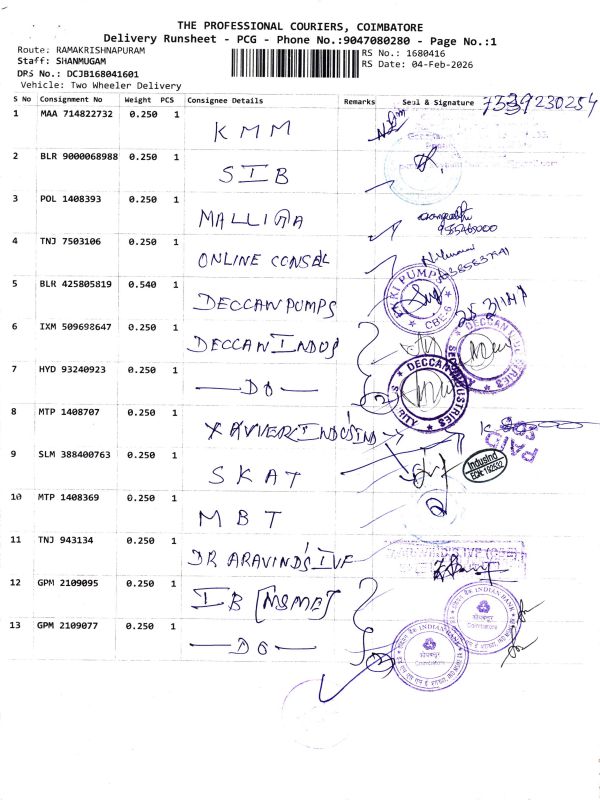 THE PROFESSIONAL COURIERS, COIMBATORE
Delivery Runsheet - PCG - Phone No.:9047080280 - Page No.:1
Route: RAMAKRISHNAPURAM
RS No.: 1680416
Staff: SHANMUGAM
RS Date: 04-Feb-2026
DRS No.: DCJB168041601
Vehicle: Two Wheeler Delivery
S No Consignment No Weight PCS Consignee Details Remarks Seal & Signature 7539230254
1 MAA 714822732 0.250 1 KMM
2 BLR 9000068988 0.250 1 SIB
3 POL 1408393 0.250 1 MALLIGA
4 TNJ 7503106 0.250 1 ONLINE CONSEL
5 BLR 425805819 0.540 1 DECCAN PUMPS
6 IXM 509698647 0.250 1 DECCAN INDUS
7 HYD 93240923 0.250 1 —DO—
DECCAN INDUSTRIES
8 MTP 1408707 0.250 1 XAVIER INDUSIND
PAID
9 SLM 388400763 0.250 1 SKAT
IndusInd
10 MTP 1408369 0.250 1 MBT
11 TNJ 943134 0.250 1 DR ARAVIND'S IVF
12 GPM 2109095 0.250 1 IB [MSME]
INDIAN BANK
Coimbatore
13 GPM 2109077 0.250 1 —DO—
INDIAN BANK
कोयम्बत्तूर
Coimbatore